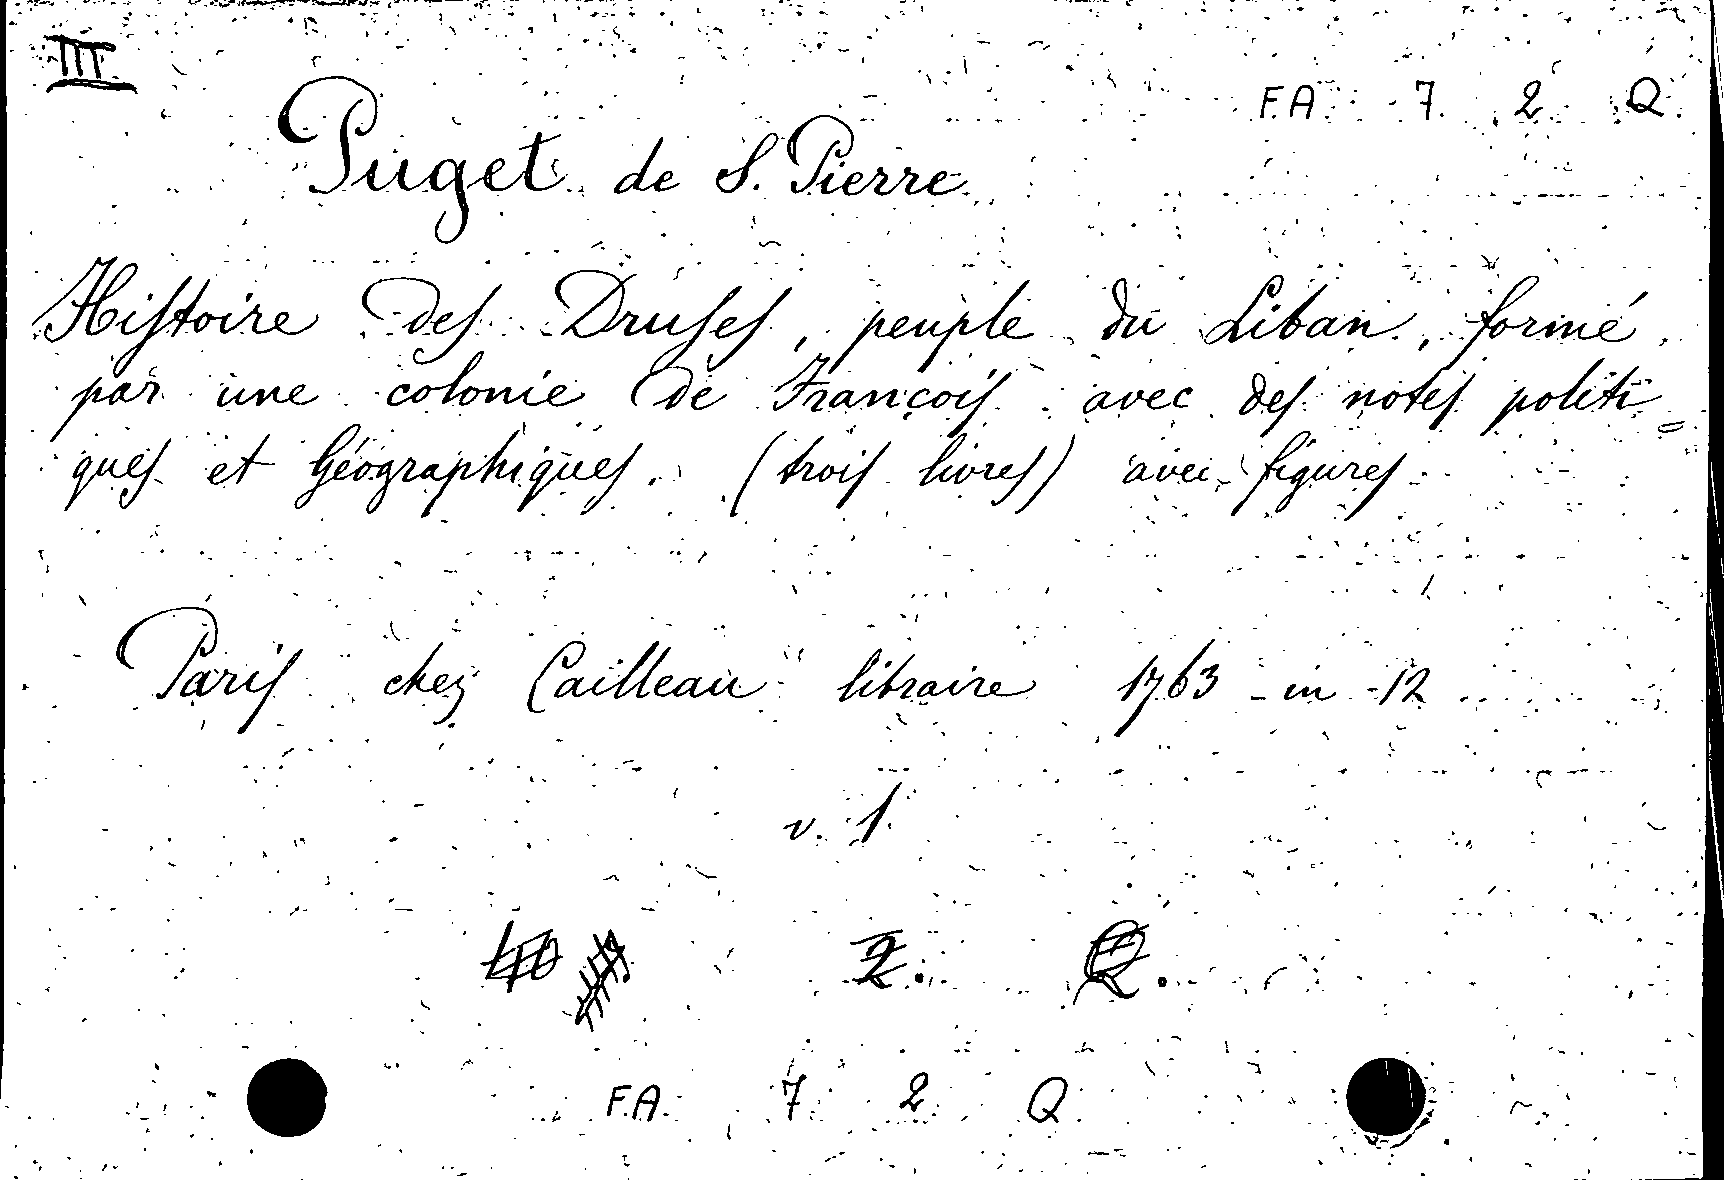 III
F.A. 7. 2 Q
Puget de S. Pierre
Histoire des Druses, peuple du Liban, formé
par une colonie de François avec des notes politi=
ques et Géographiques. (trois livres) avec figures
Paris chez Cailleau libraire 1763 - in - 12
v. 1.
2. Q.
F.A. 7. 2 Q